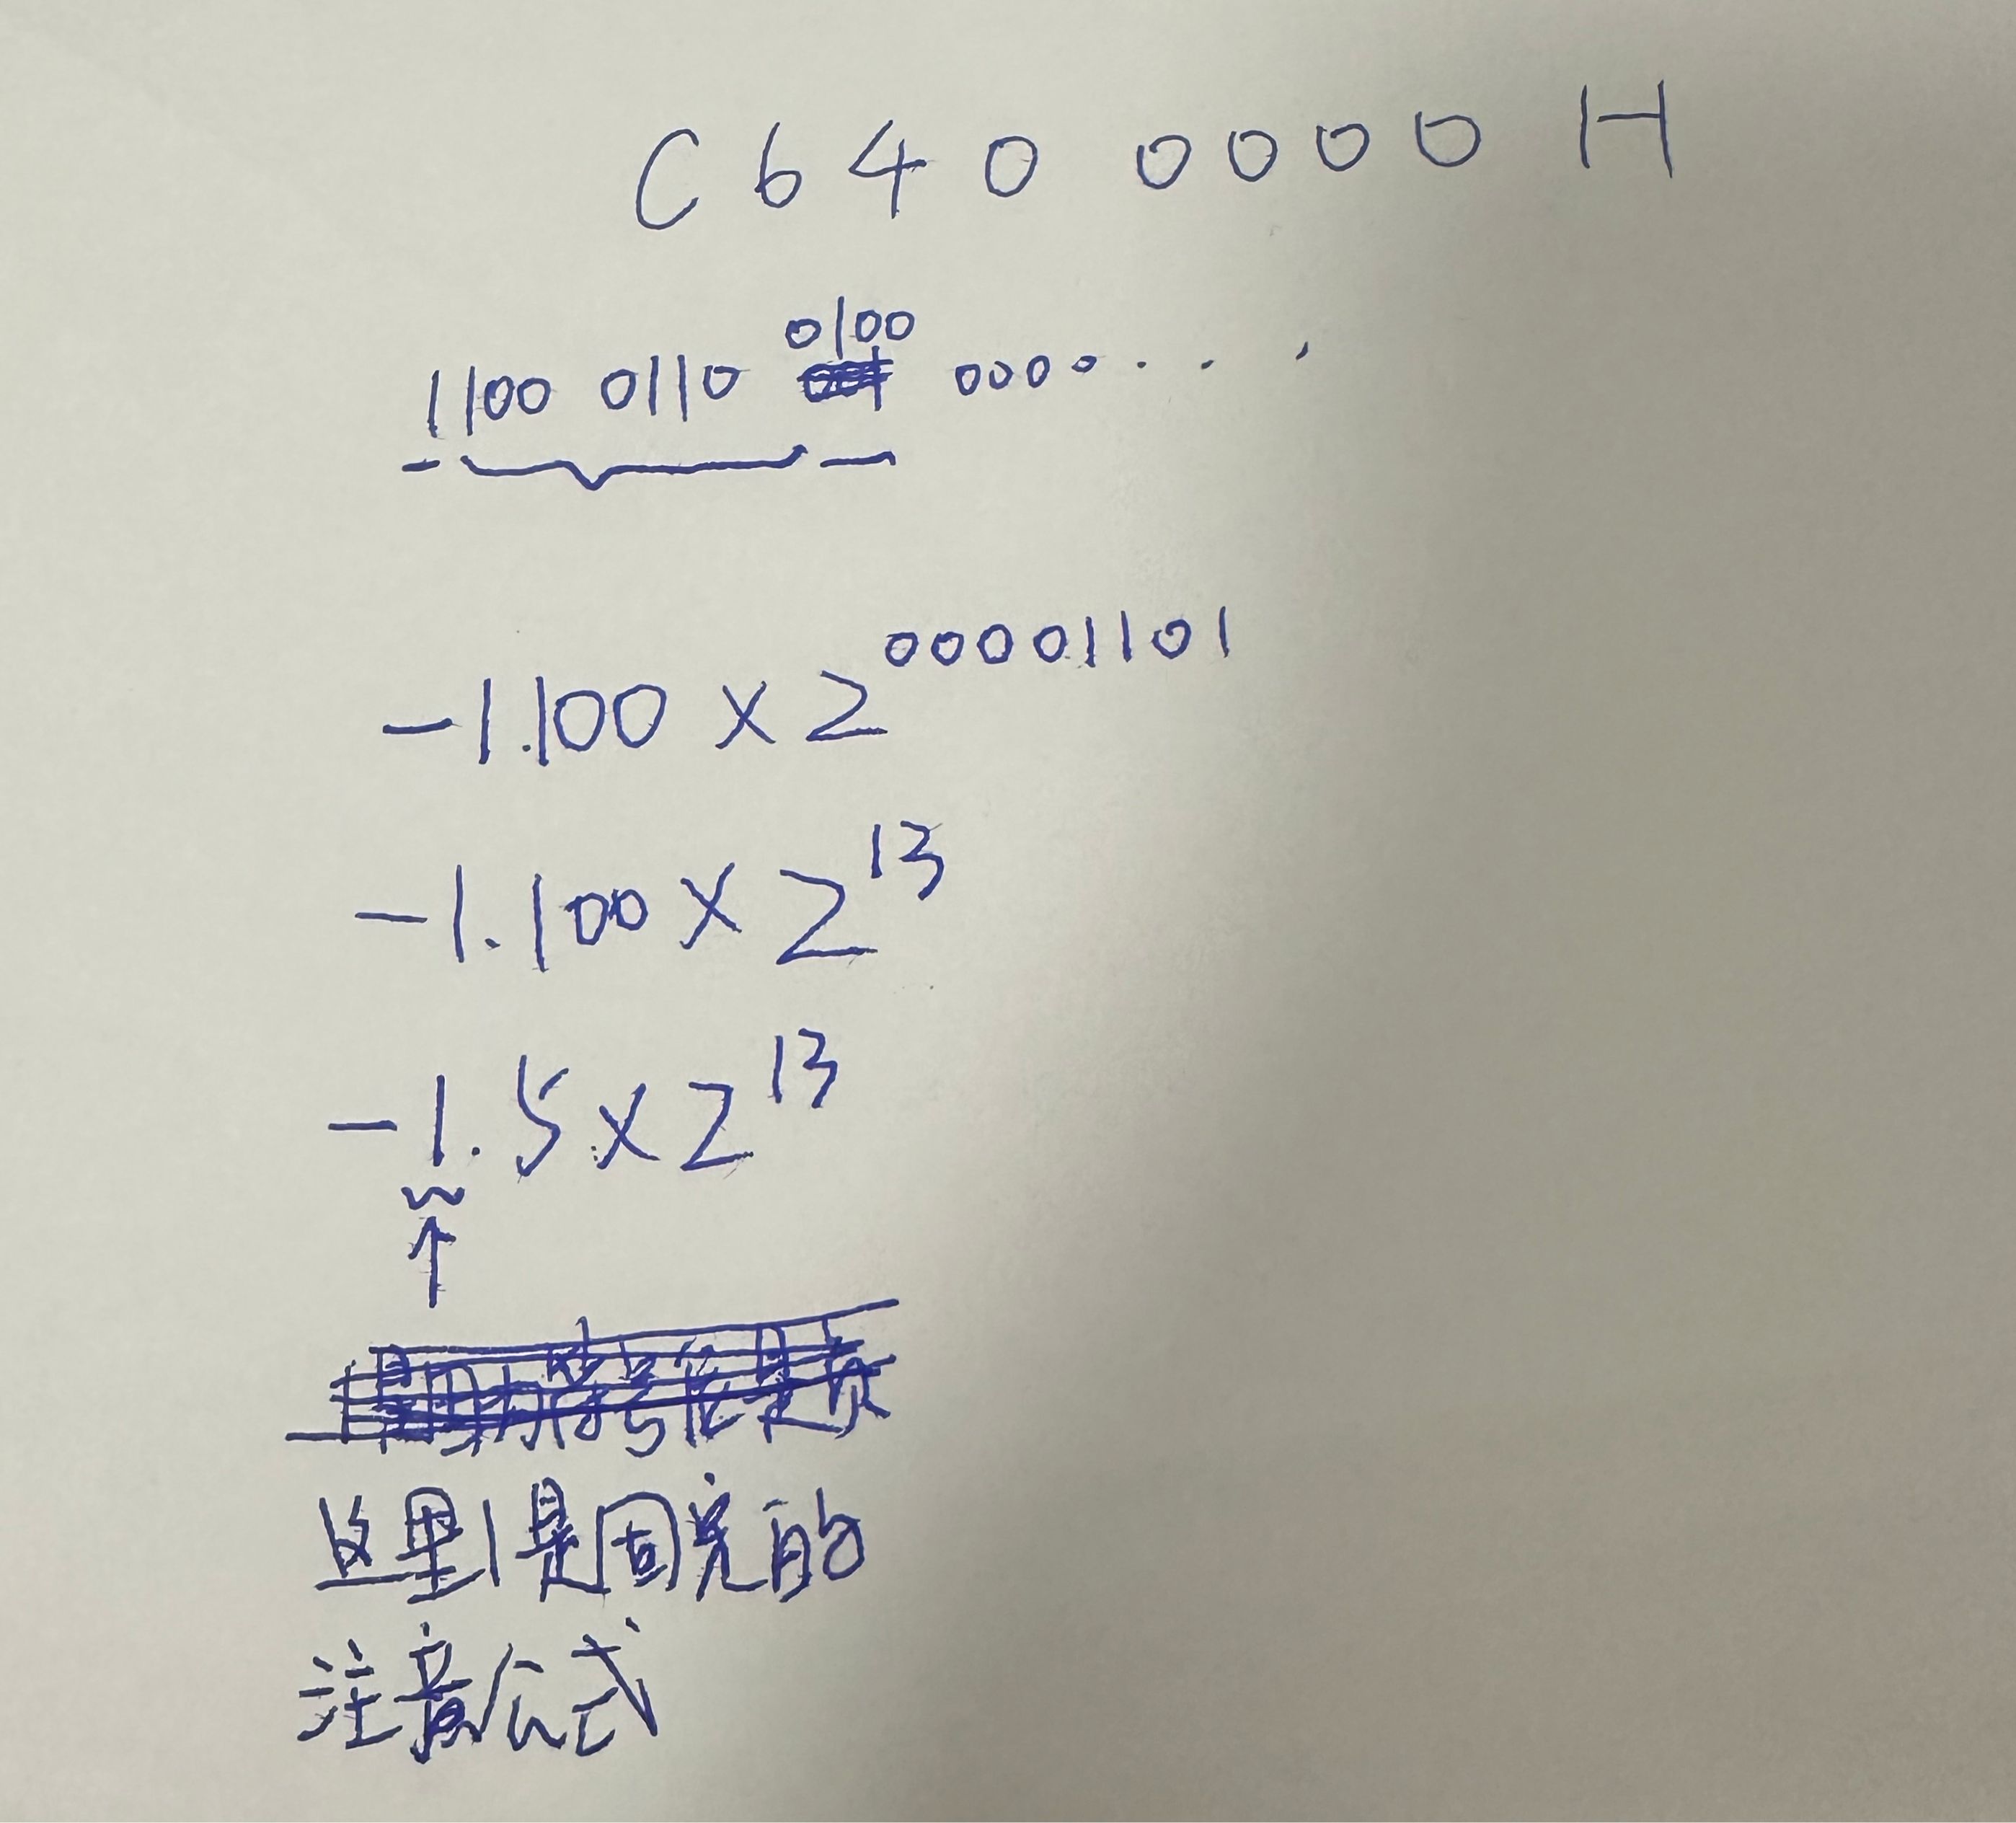 C640 0000H
0100
1100 0110 0000...
-1.100×2^00001101
-1.100×2^13
-1.5×2^13
这里1是固定的
注意公式